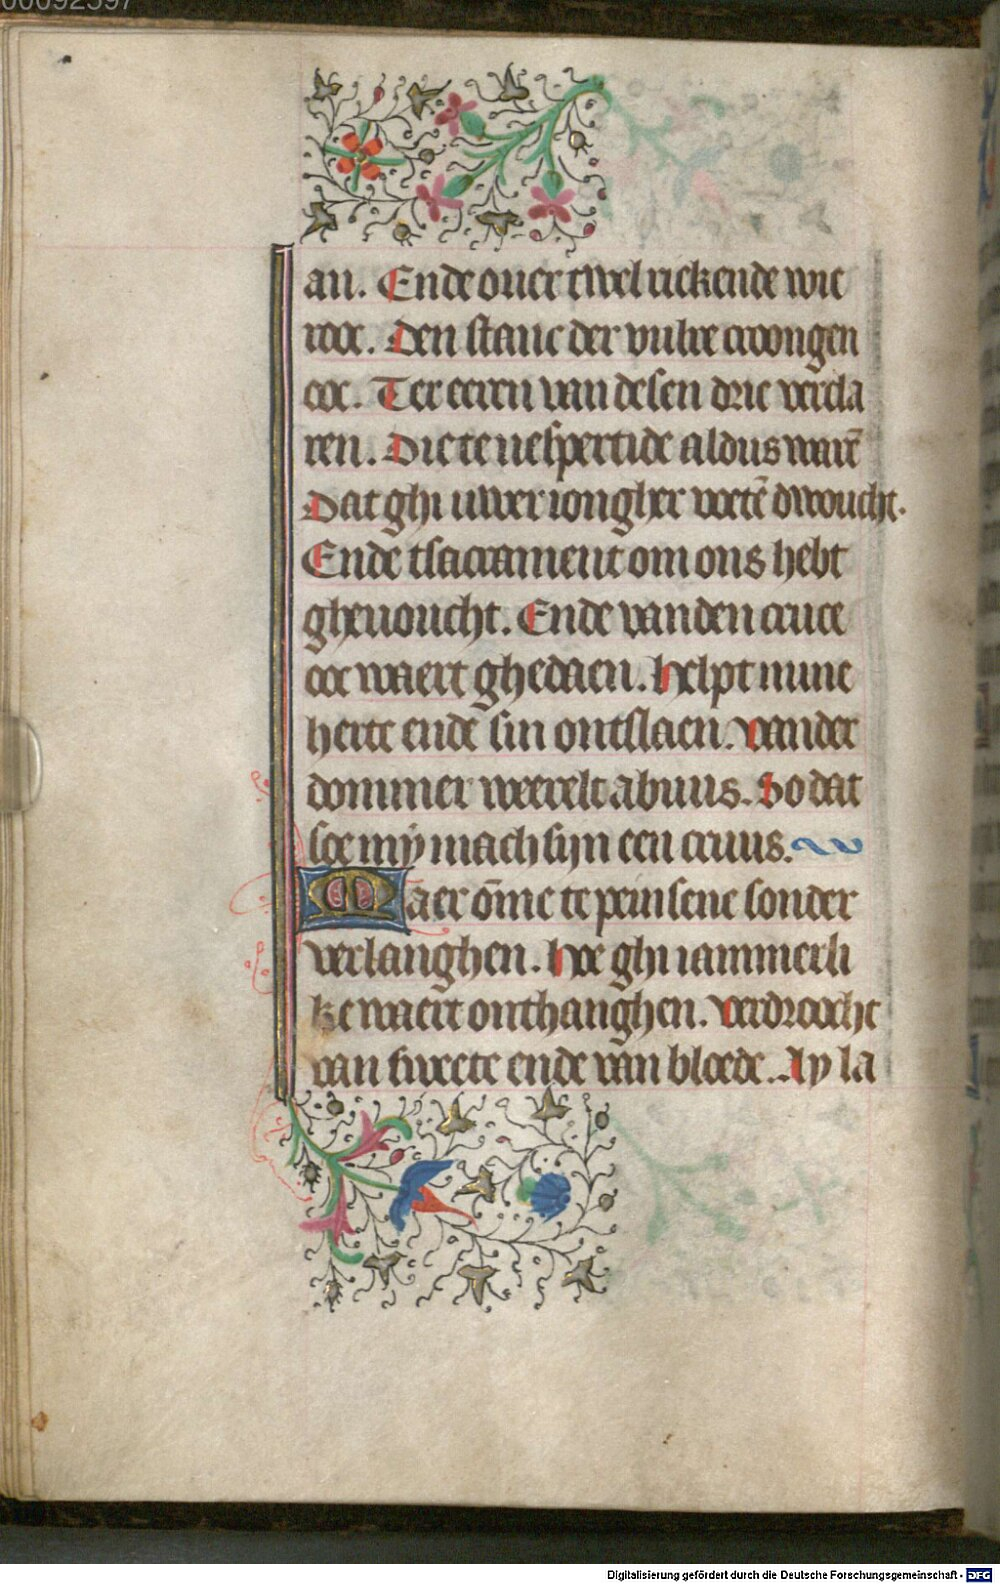 00092597
an. Ende ouer twel rickende wie
rooc. Den staue der vulre croongen
ooc. Ter eeren van desen drie vercla
ren. Die te uespertide aldus warē
Dat ghi uwer iongher voetē dwoucht.
Ende tsacrament om ons hebt
gheuoucht. Ende vanden cruce
ooc waert ghedaen. helpt mine
herte ende sin ontslaen. vander
dommer weerelt abuus. So dat
soe mÿ mach sijn een cruus.
Maer ōme te peinsene sonder
verlanghen. hoe ghi iammerli
ke waert onthanghen. verdroocht
van sweete ende van bloede. Ay la
Digitalisierung gefördert durch die Deutsche Forschungsgemeinschaft - DFG